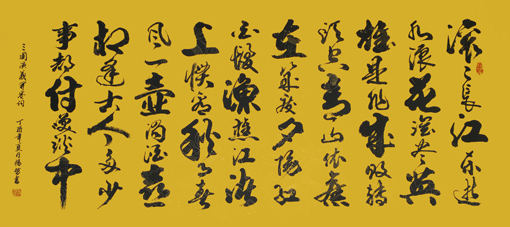 滚〻長江东逝
水浪花淘尽英
雄是非成败转
头空青山依舊
在几度夕阳红
白髮漁樵江渚
上惯看秋月春
风一壶浊酒喜
相逢古今多少
事都付笑谈中
三国演义开卷词
丁酉年夏月